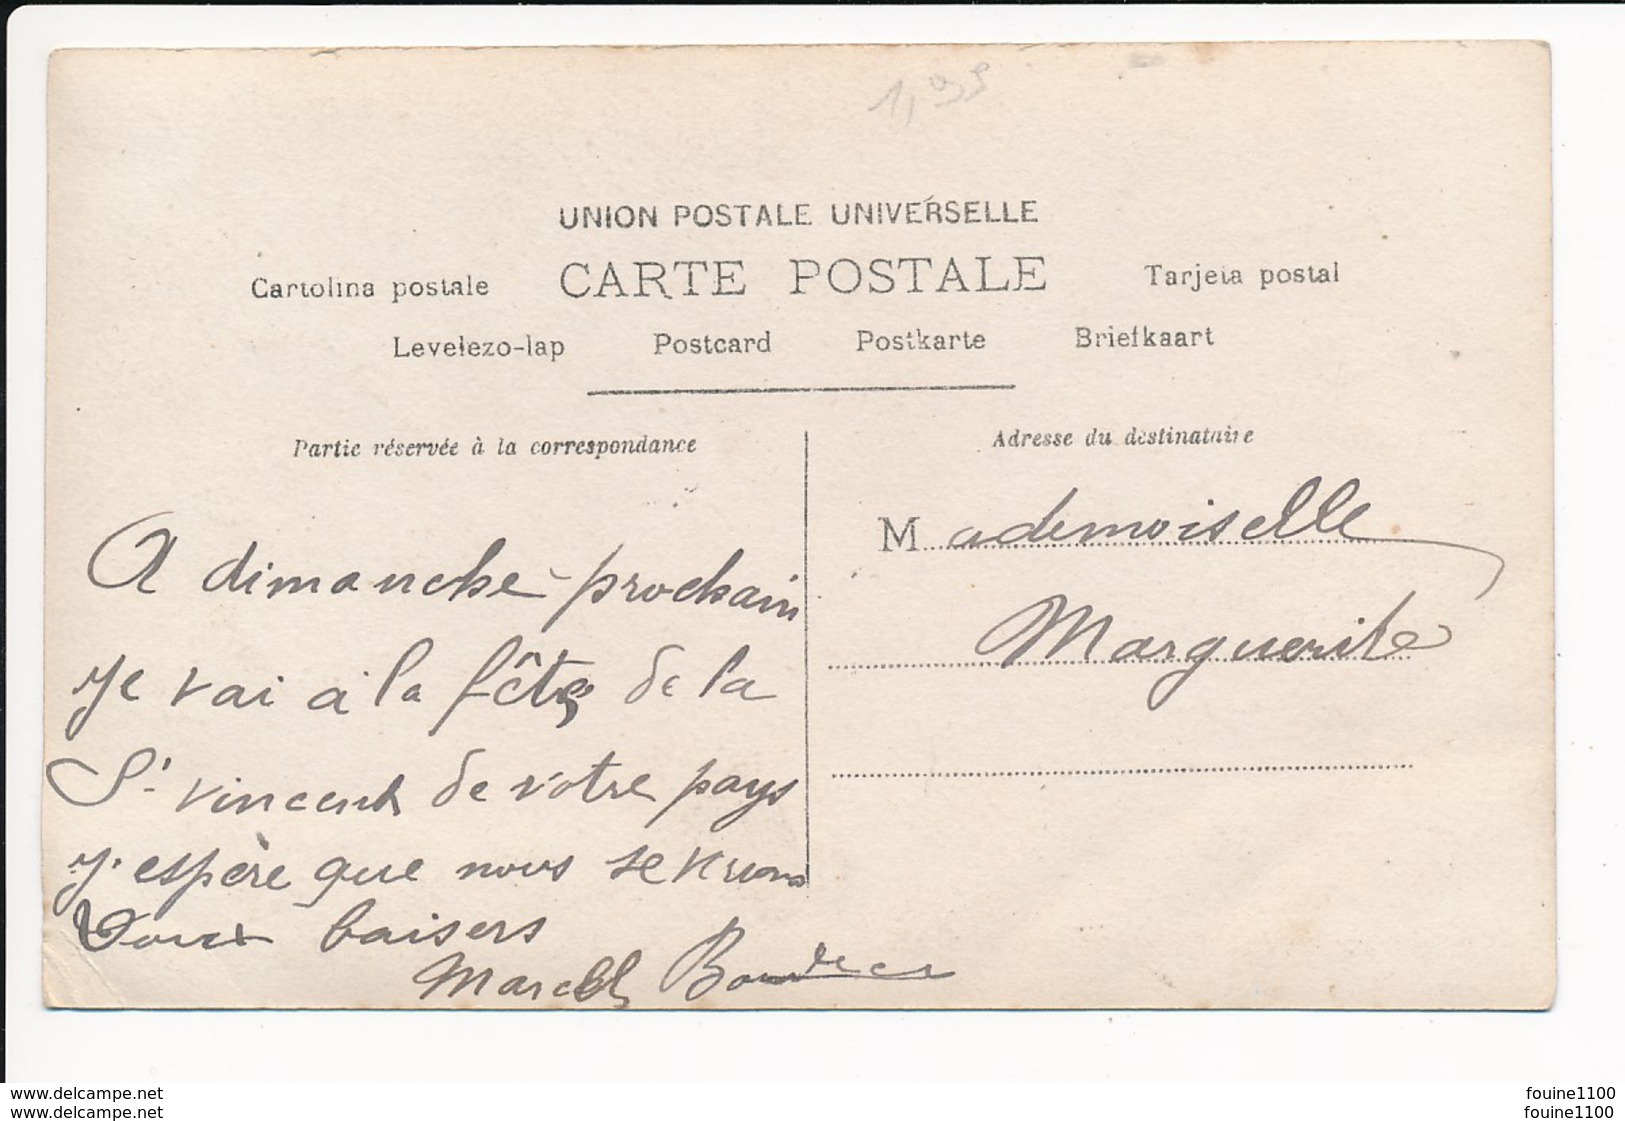 1,95
UNION POSTALE UNIVERSELLE
CARTE POSTALE
Cartolina postale
Tarjeta postal
Levelezo-lap Postcard Postkarte Briefkaart
Partie réservée à la correspondance
A dimanche prochain
je vai à la fête de la
St vincent de votre pays
j'espère que nous se verrons
Doux baisers
Marcel
Adresse du destinataire
Mademoiselle
Marguerite
www.delcampe.net
www.delcampe.net
fouine1100
fouine1100